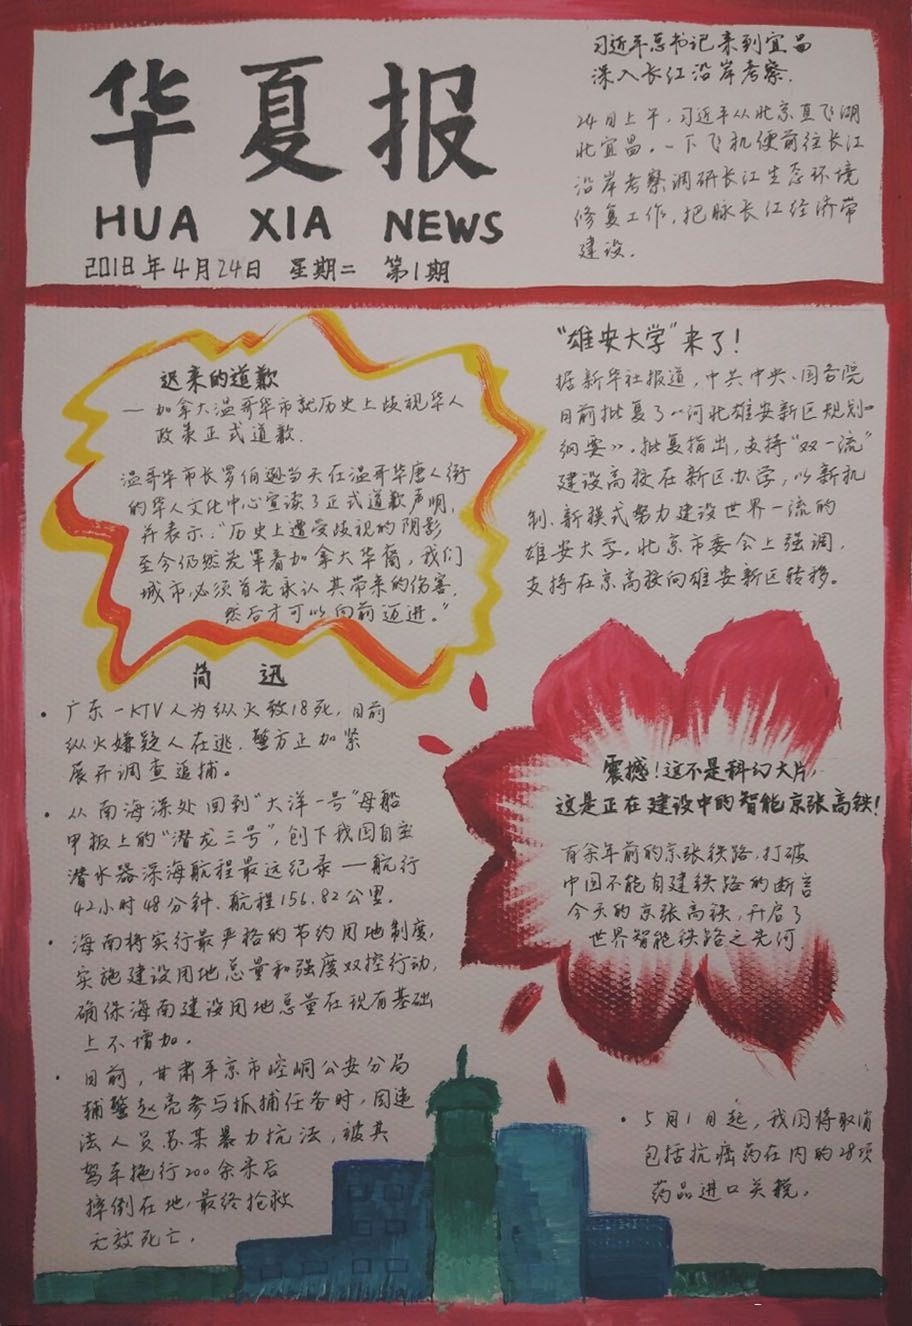 华夏报
HUA XIA NEWS
2018年4月24日 星期二 第1期
习近平总书记来到宜昌
深入长江沿岸考察.
24日上午,习近平从北京直飞湖
北宜昌。一下飞机便前往长江
沿岸考察调研长江生态环境
修复工作,把脉长江经济带
建设。
迟来的道歉
— 加拿大温哥华市就历史上歧视华人
政策正式道歉.
温哥华市长罗伯逊当天在温哥华唐人街
的华人文化中心宣读了正式道歉声明,
并表示:“历史上遭受歧视的阴影
至今仍然笼罩着加拿大华裔,我们
城市必须首先承认其带来的伤害,
然后才可以向前迈进。”
“雄安大学”来了!
据新华社报道,中共中央、国务院
日前批复了《河北雄安新区规划
纲要》。批复指出,支持“双一流”
建设高校在新区办学,以新机
制、新模式努力建设世界一流的
雄安大学。北京市委会上强调,
支持在京高校向雄安新区转移。
简 迅
• 广东一KTV人为纵火致18死,目前
纵火嫌疑人在逃,警方正加紧
展开调查追捕。
• 从南海深处回到“大洋一号”母船
甲板上的“潜龙三号”,创下我国自主
潜水器深海航程最远纪录——航行
42小时48分钟、航程156.82公里.
• 海南将实行最严格的节约用地制度,
实施建设用地总量和强度双控行动,
确保海南建设用地总量在现有基础
上不增加.
• 日前,甘肃平京市崆峒公安分局
辅警赵亮参与抓捕任务时,因违
法人员苏某暴力抗法,被其
驾车拖行200余米后
摔倒在地,最终抢救
无效死亡.
震撼!这不是科幻大片,
这是正在建设中的智能京张高铁!
百余年前的京张铁路,打破
中国不能自建铁路的断言
今天的京张高铁,开启了
世界智能铁路之先河.
• 5月1日起,我国将取消
包括抗癌药在内的28项
药品进口关税。